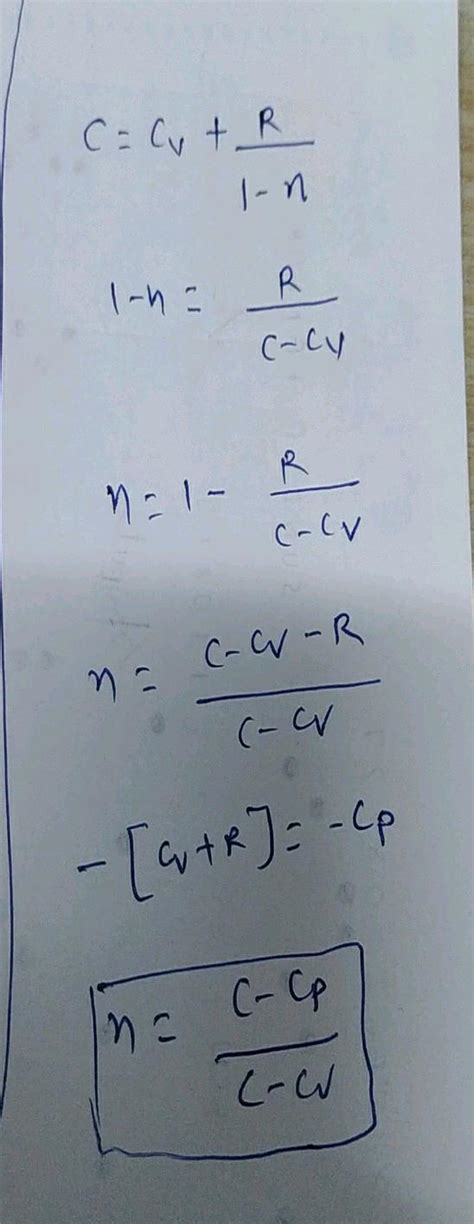 C = Cv + R / 1-n
1-n = R / C-Cv
n = 1 - R / C-Cv
n = C-Cv-R / C-Cv
-[Cv+R] = -Cp
n = C-Cp / C-Cv